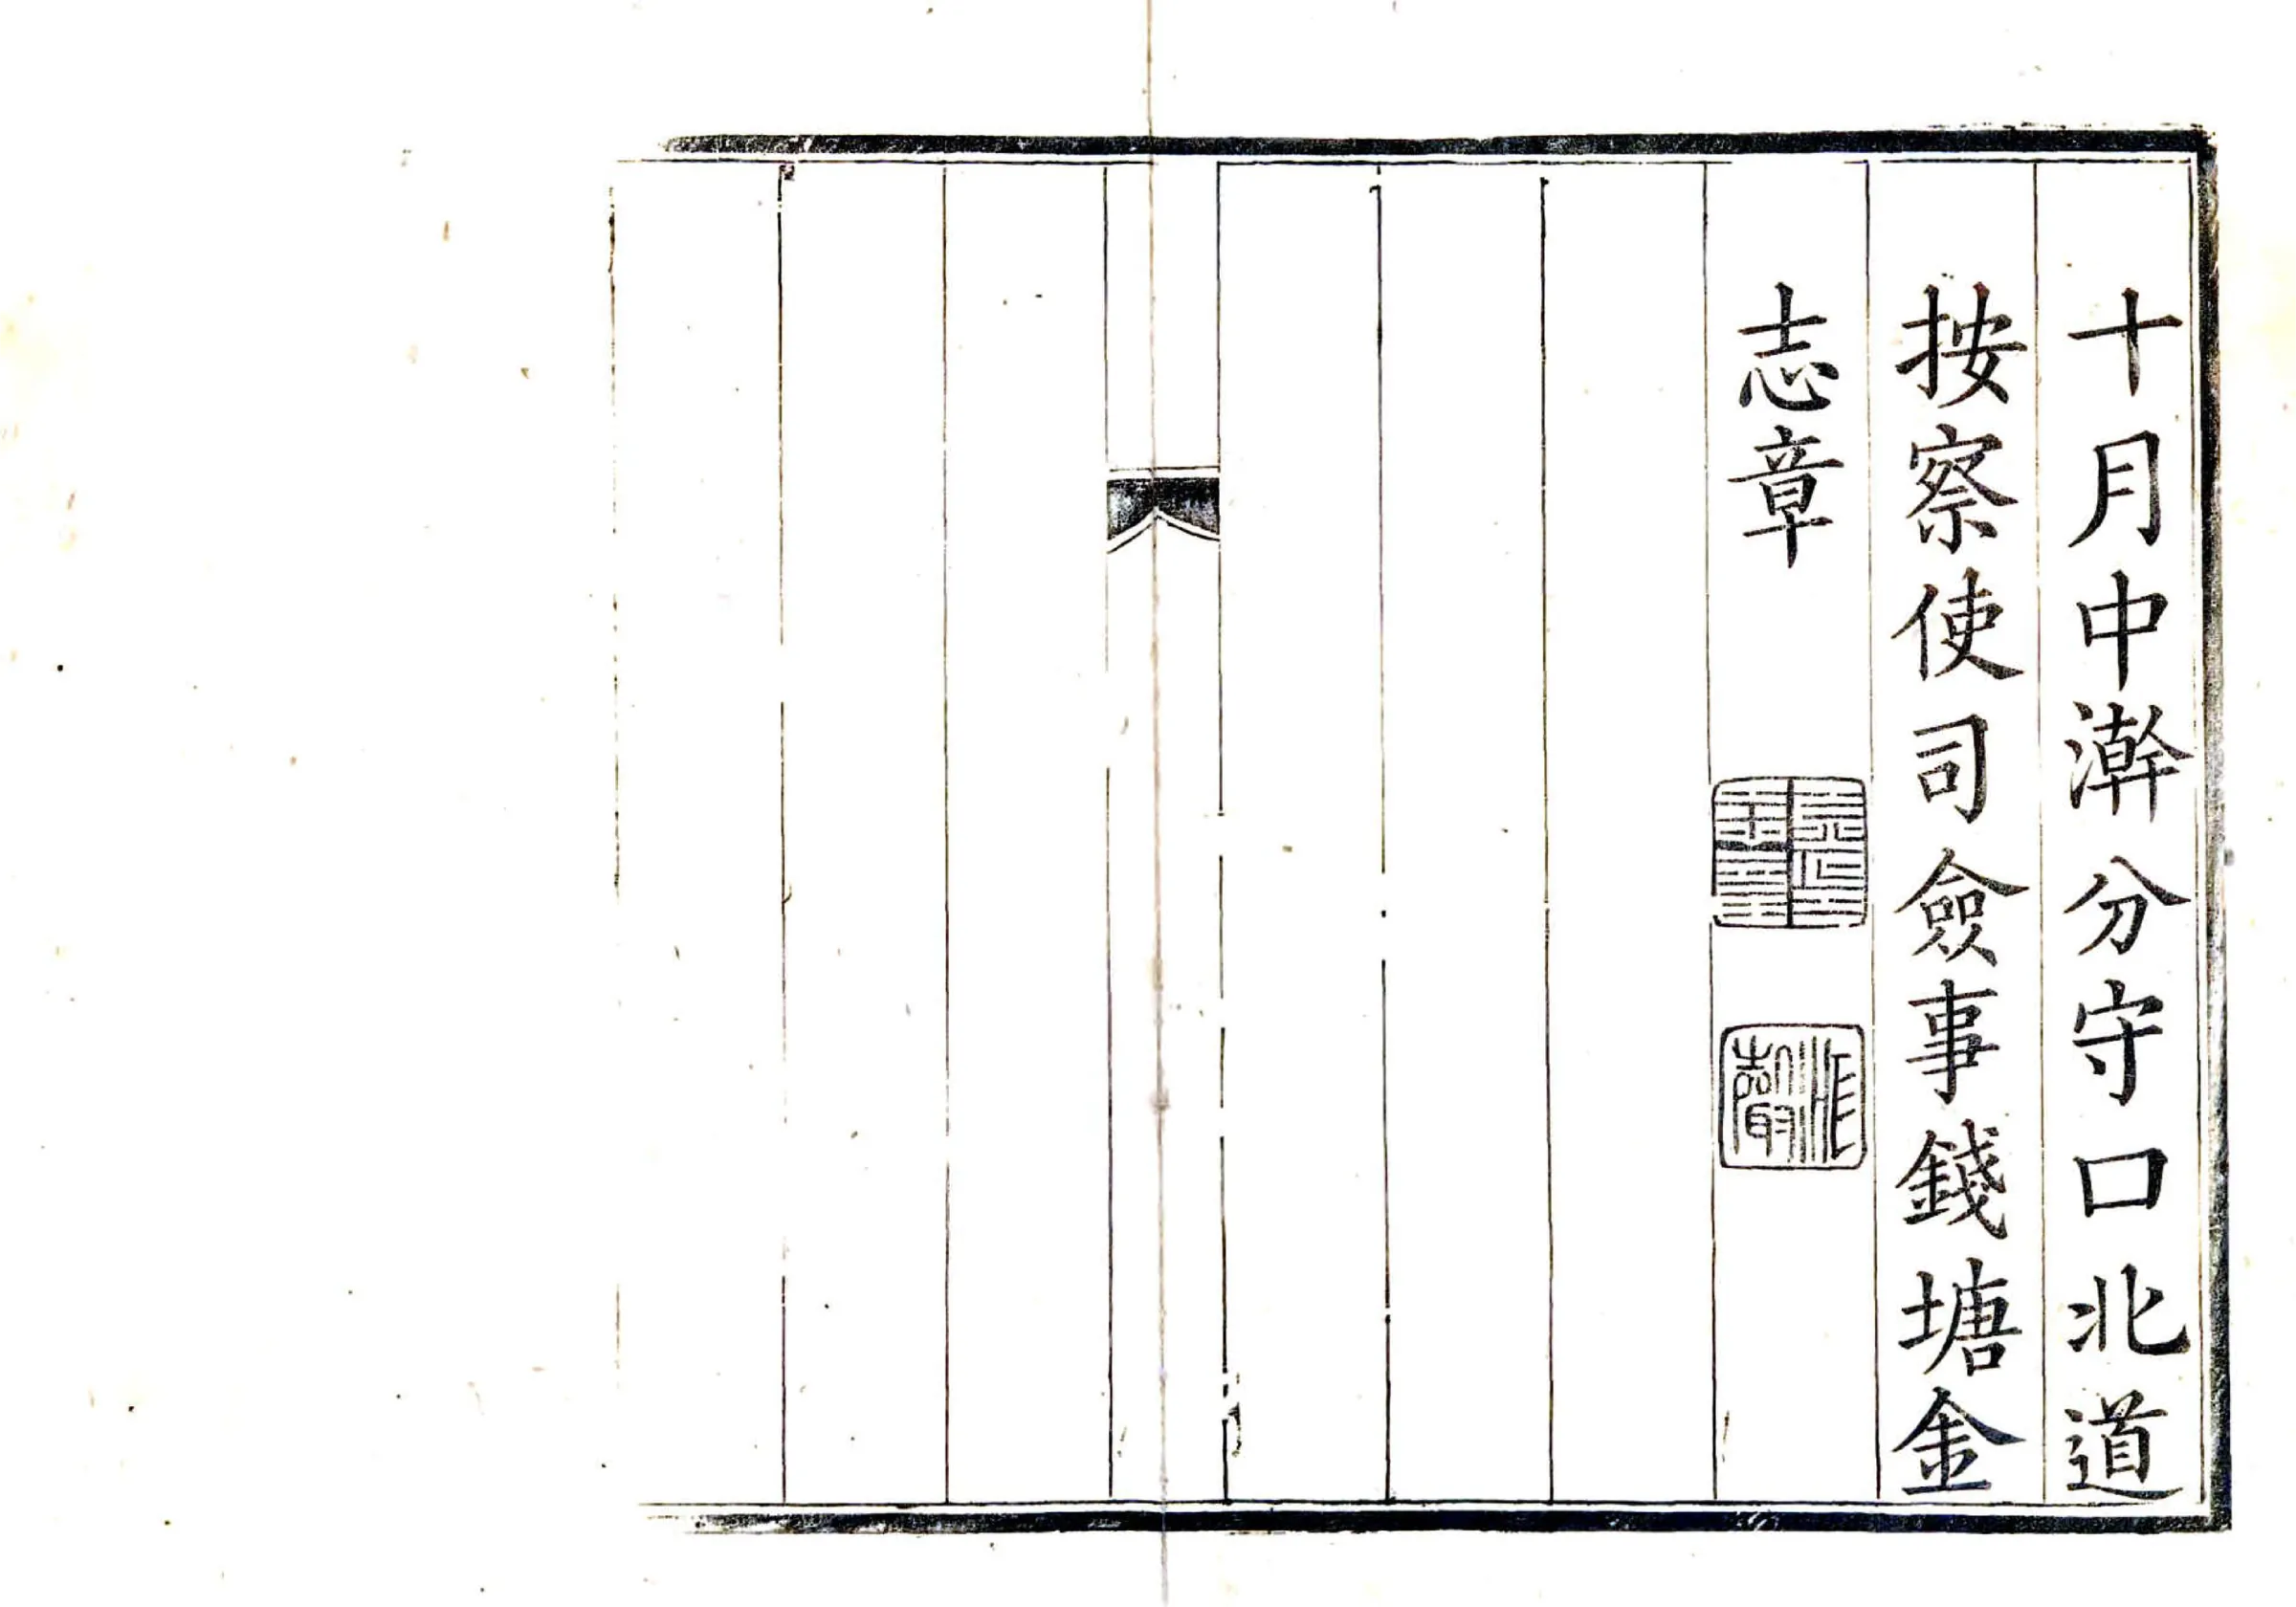 十月中澣分守口北道
按察使司僉事錢塘金
志章